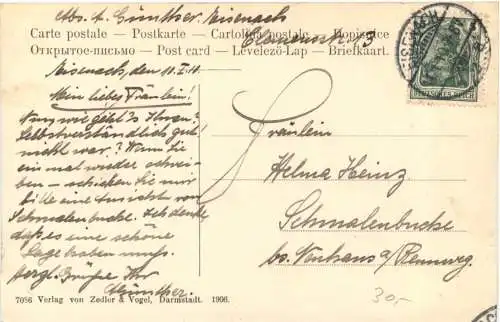 Abs. A. Günther. Eisenach
Carte postale — Postkarte — Cartolina postale — Dopisnice
Открытое-письмо — Post card — Levelező-Lap — Briefkaart.
Eisenach, den 10.I.10.
Mein liebes Fräulein!
Nun wie geht's Ihnen?
Selbstverständlich gut!
nicht war? Wenn Sie
ein mal wieder schrei-
ben – schicken Sie mir
bitte eine Ansicht von
Schmalenbucke. Ich denke
daß es eine schöne
Lage haben muß.
Herzl. Grüße Ihr
Günther.
DEUTSCHES REICH
Fräulein
Helma Heinz
Schmalenbucke
bs. Neuhaus a/Rennweg.
7086 Verlag von Zedler & Vogel, Darmstadt. 1906.
30,-